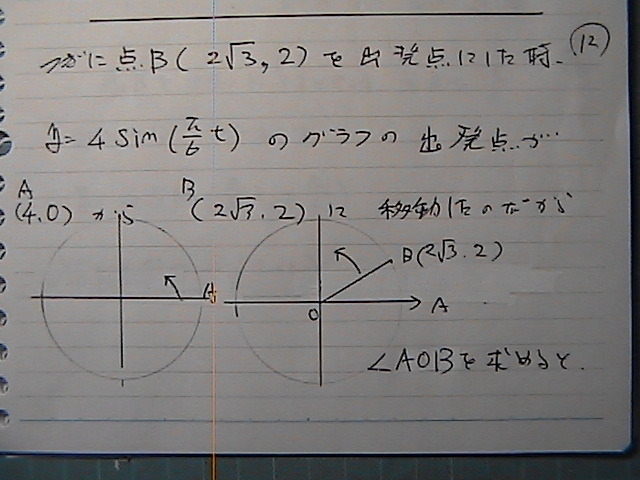 つぎに点B(2√3, 2)を出発点にした時、 ⑫
y=4 sin(π/6 t) のグラフの出発点が
A B
(4.0) から (2√3. 2) に 移動したのだから
A B(2√3. 2)
O A
∠AOBを求めると、